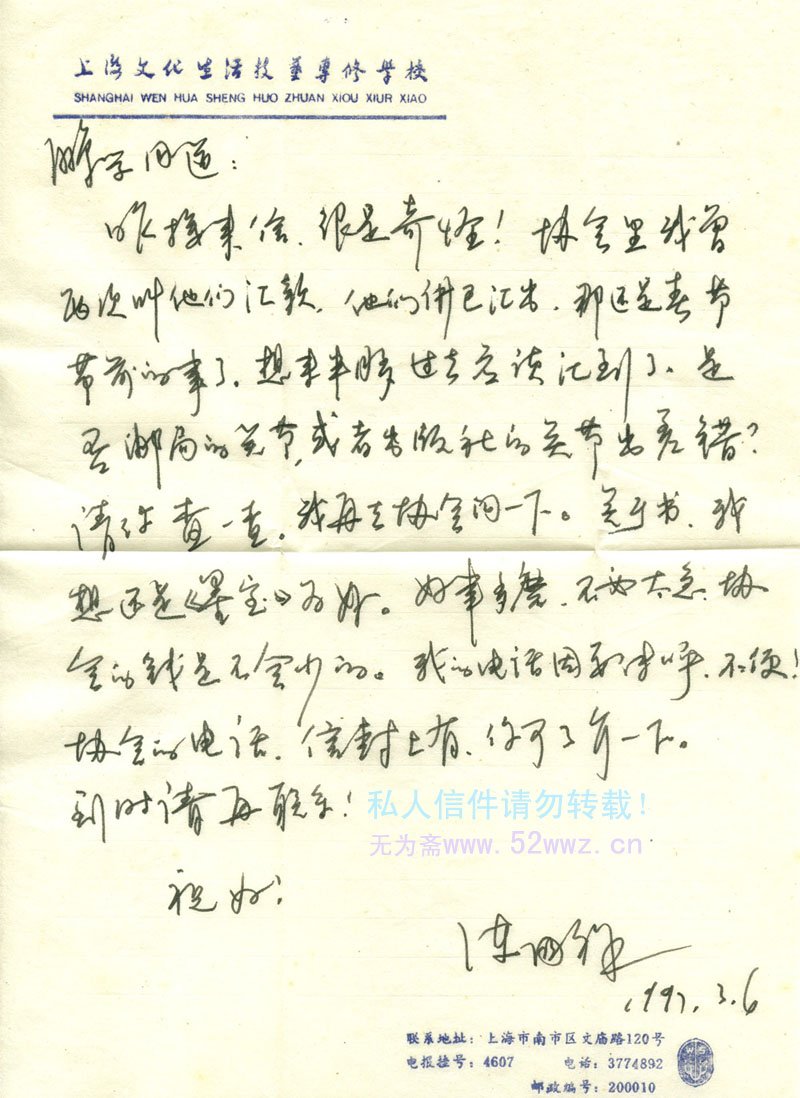 上海文化生活技艺专修学校
SHANGHAI WEN HUA SHENG HUO ZHUAN XIOU XIUR XIAO
学同道：
昨接来信，很是奇怪！协会里我曾
两次叫他们汇款，他们俱已汇出，那还是春节
节前的事了，想来半月多过去应该汇到了，是
否邮局的关节，或者出版社的关节出差错？
请你查一查。我再去协会问一下。关于书，我
想还是《墨宝》为好。好事多磨，不必太急，协
会的钱是不会少的。我的电话因要传呼，不便！
协会的电话，信封上有，你可了解一下。
到时请再联系！
私人信件请勿转载！
无为斋www.52wwz.cn
祝好！
1997.3.6
联系地址：上海市南市区文庙路120号
电报挂号：4607 电话：3774892
邮政编号：200010